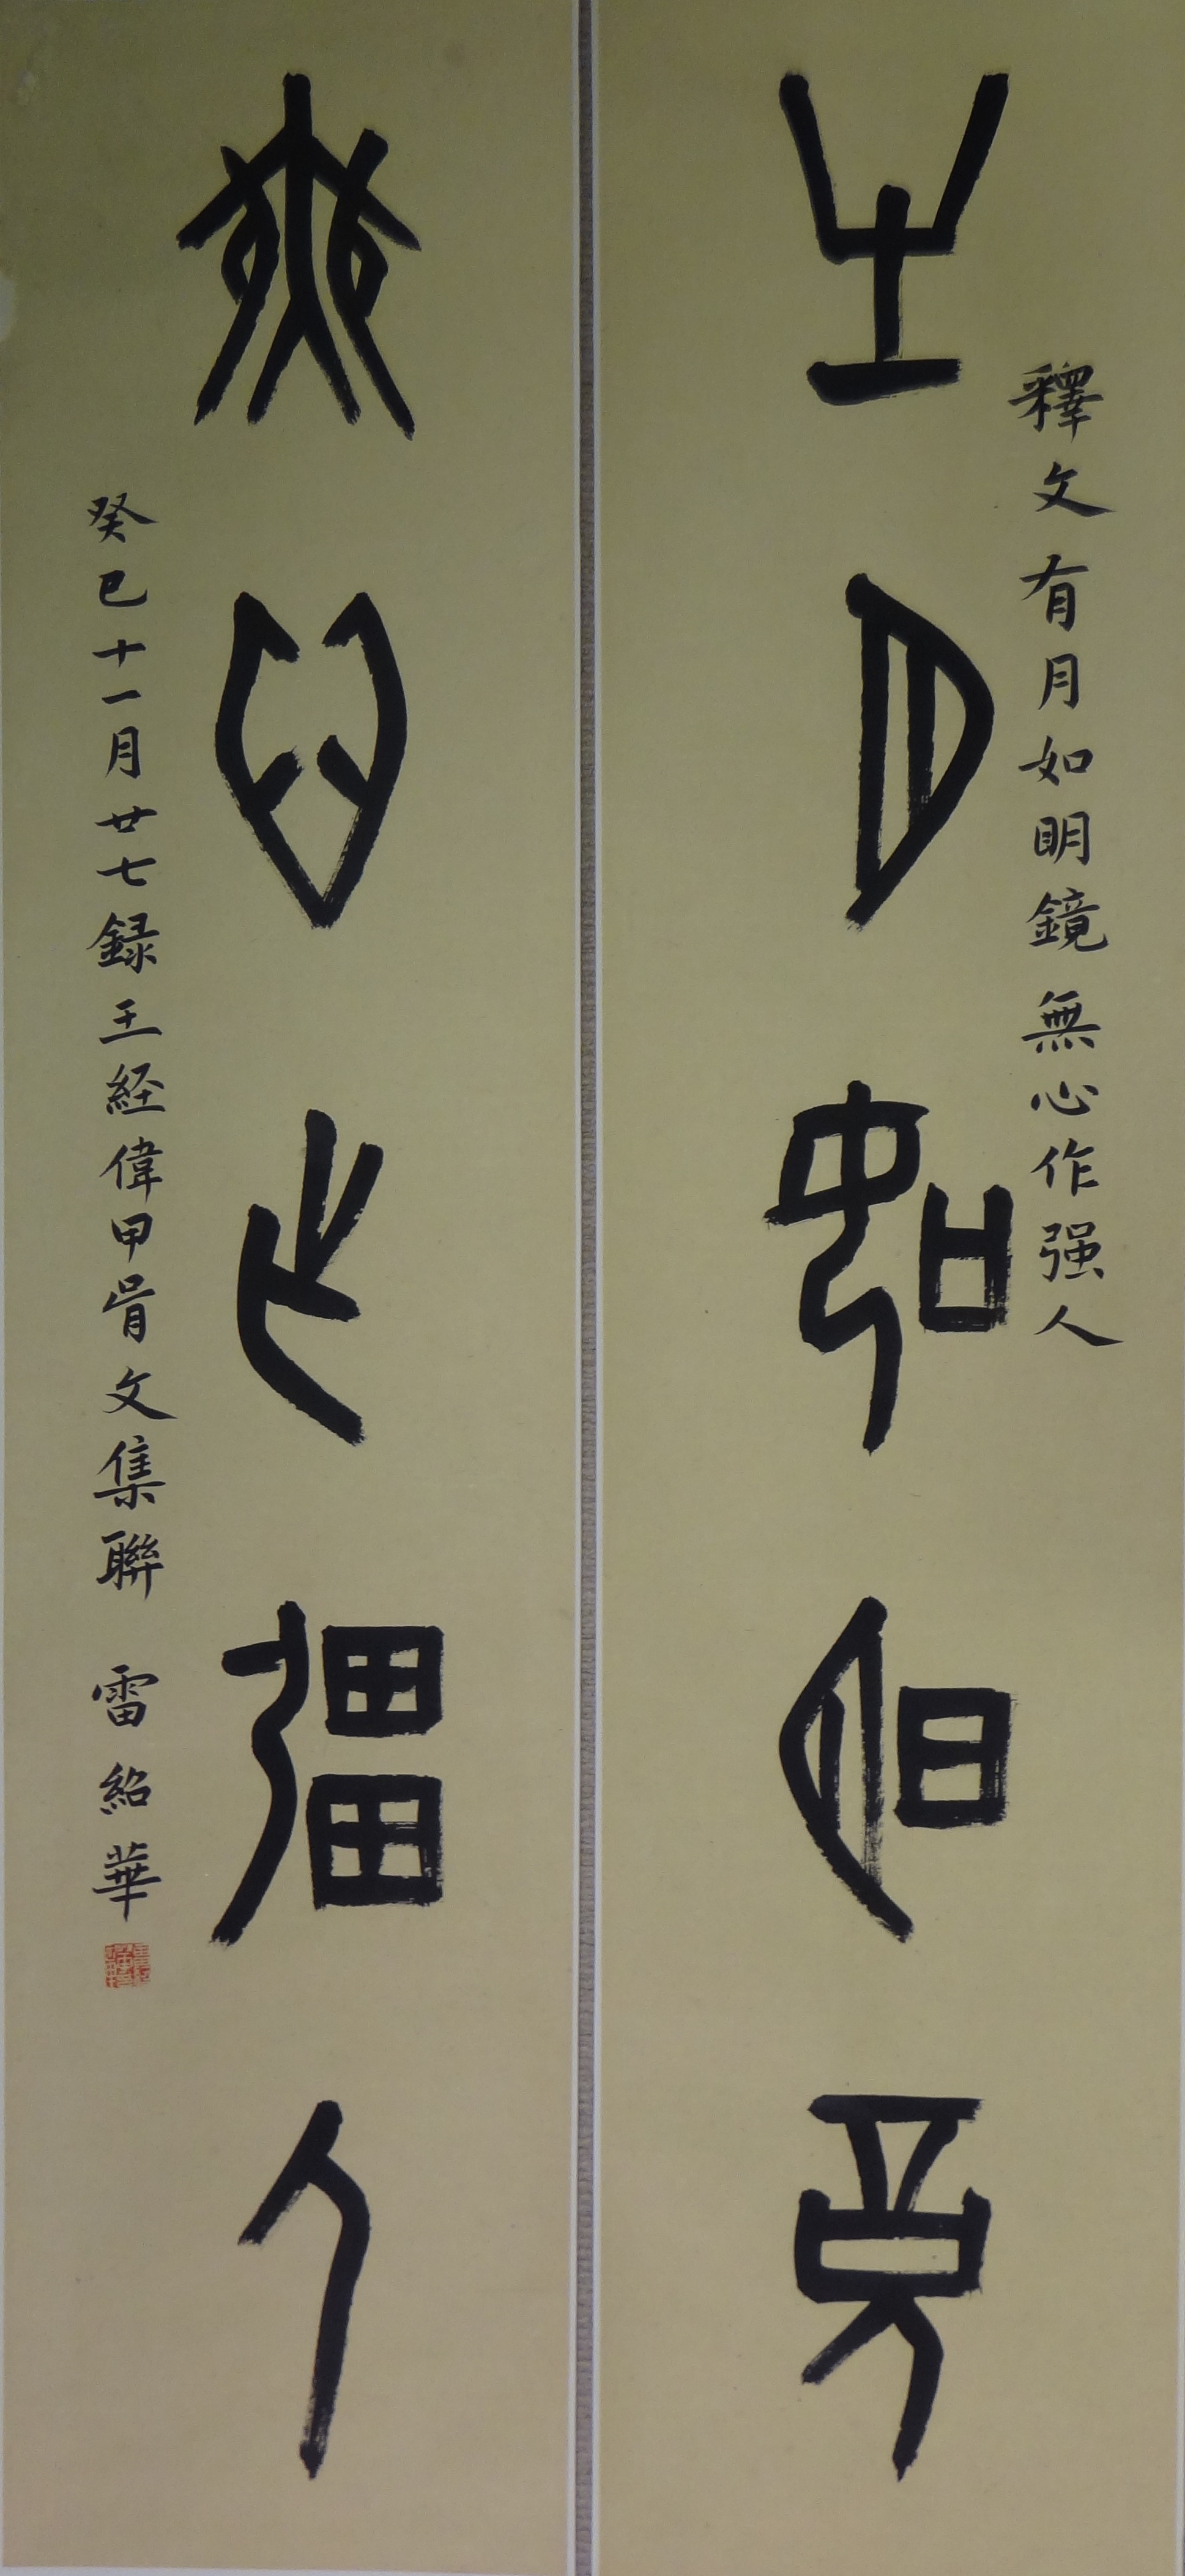 有月如明鏡
釋文有月如明鏡無心作强人
無心作彊人
癸巳十一月廿七録王経偉甲骨文集聯 雷紹華